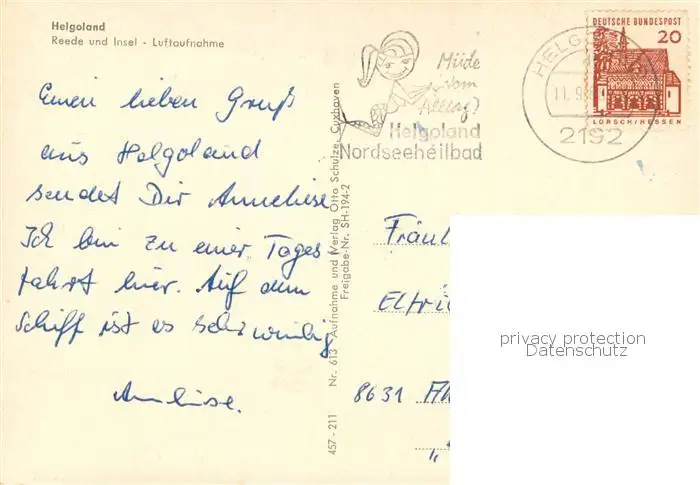 Helgoland
Reede und Insel - Luftaufnahme
Einen lieben Gruß
aus Helgoland
sendet Dir Anneliese
Ich bin zu einer Tages
fahrt hier. Auf dem
Schiff ist es sehr windig
Anneliese.
457 - 211 Nr. 613 · Aufnahme und Verlag Otto Schulze, Cuxhaven
Freigabe-Nr. SH-194-2
Müde
vom
Alltag?
Helgoland
Nordseeheilbad
HELG
11. 9.
2192
DEUTSCHE BUNDESPOST
20
LORSCH/HESSEN
Fräul
Elfri
8631 A
privacy protection
Datenschutz